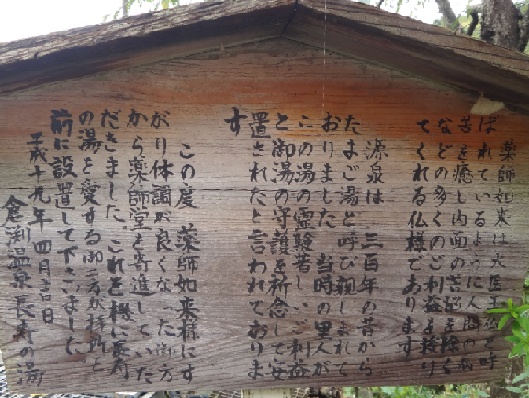 薬師如来は大医王佛と呼
ばれているように人間の病
苦を癒し内面の苦悩を除く
などの多くのご利益を授け
てくれる仏様であります
源泉は 三百年の昔から
たまご湯と呼び親しまれて
おりました 当時の里人が
この湯の霊験著しいご利益
と御湯の守護を祈念して安
置されたと言われておりま
す
この度 薬師如来様にす
がり体調が良くなった御方
から薬師堂を寄進していた
だきました これを機に長寿
の湯を愛する御二方が灯籠を
前に設置して下さいました
平成十九年 四月吉日
倉渕温泉 長寿の湯